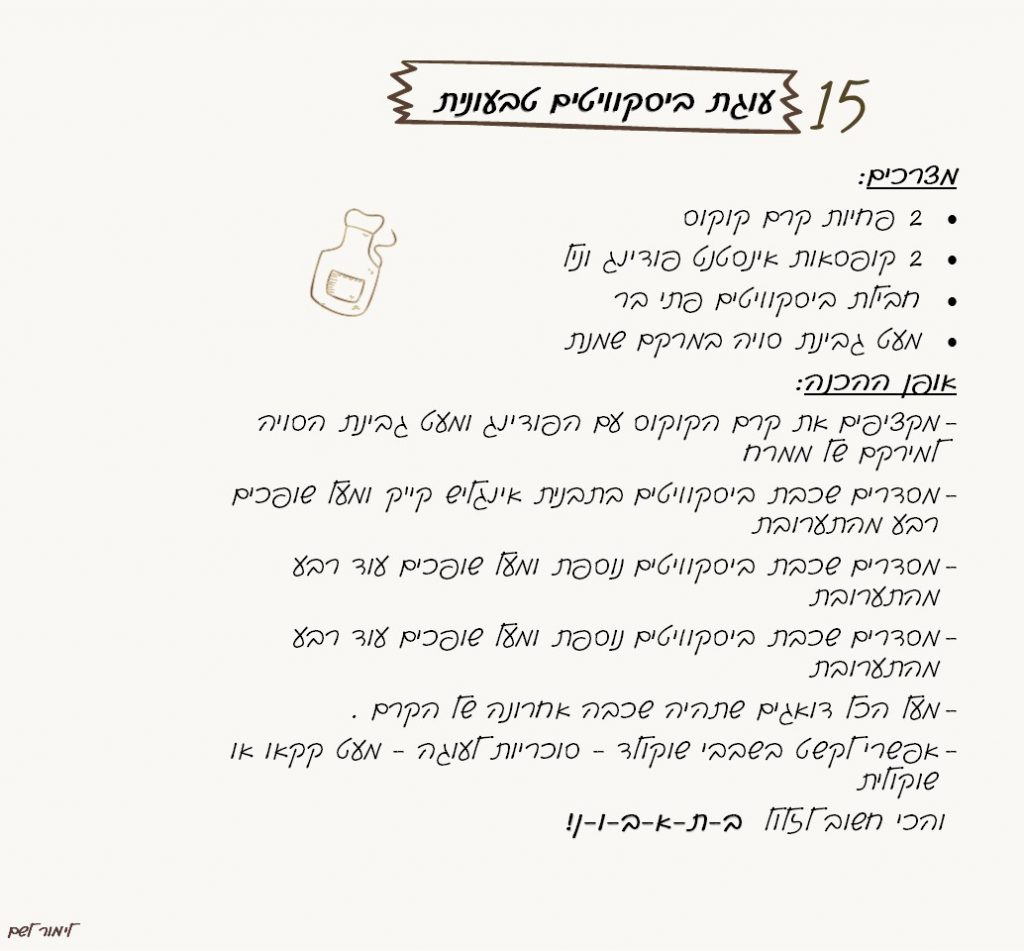 15 עוגת ביסקוויטים טבעונית
מצרכים:
• 2 פחיות קרם קוקוס
• 2 קופסאות אינסטנט פודינג וניל
• חבילת ביסקוויטים פתי בר
• מעט גבינת סויה במרקם שמנת
אופן ההכנה:
-מקציפים את קרם הקוקוס עם הפודינג ומעט גבינת הסויה
למירקם של ממרח
-מסדרים שכבת ביסקוויטים בתבנית אינגליש קייק ומעל שופכים
רבע מהתערובת
-מסדרים שכבת ביסקוויטים נוספת ומעל שופכים עוד רבע
מהתערובת
-מסדרים שכבת ביסקוויטים נוספת ומעל שופכים עוד רבע
מהתערובת
-מעל הכל דואגים שתהיה שכבה אחרונה של הקרם .
-אפשרי לקשט בשבבי שוקולד - סוכריות לעוגה - מעט קקאו או
שוקולית
והכי חשוב לזלול ב-ת-א-ב-ו-ן!
לימור לשם